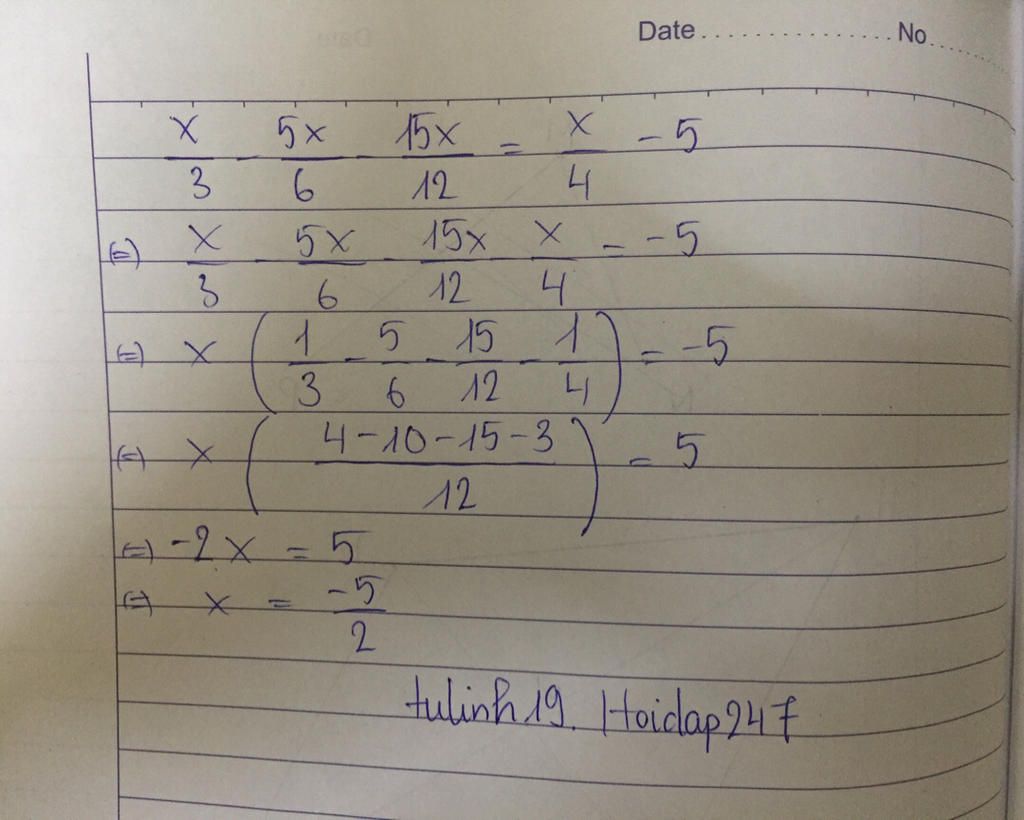 Date................No.....
x/3 - 5x/6 - 15x/12 = x/4 - 5
(=) x/3 - 5x/6 - 15x/12 - x/4 = -5
(=) x (1/3 - 5/6 - 15/12 - 1/4) = -5
(=) x ((4-10-15-3)/12) = 5
(=) -2x = 5
(=) x = -5/2
tulinh19. Hoidap247